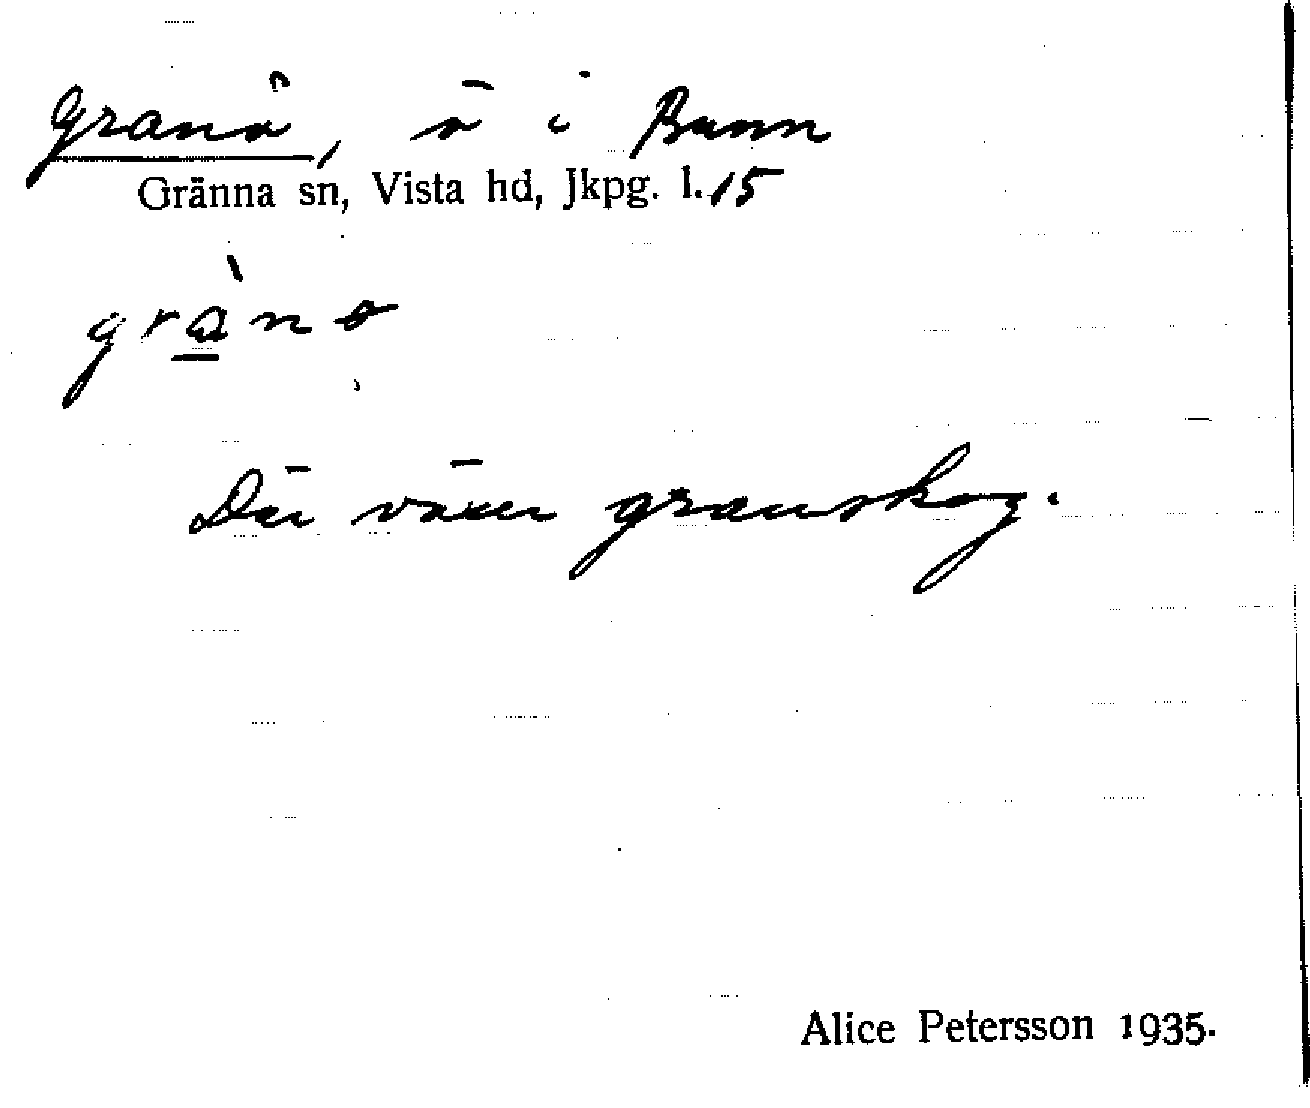 Granö, ö i Bunn
Gränna sn, Vista hd, Jkpg. l. 15
grànö
Där växer granskog.
Alice Petersson 1935.